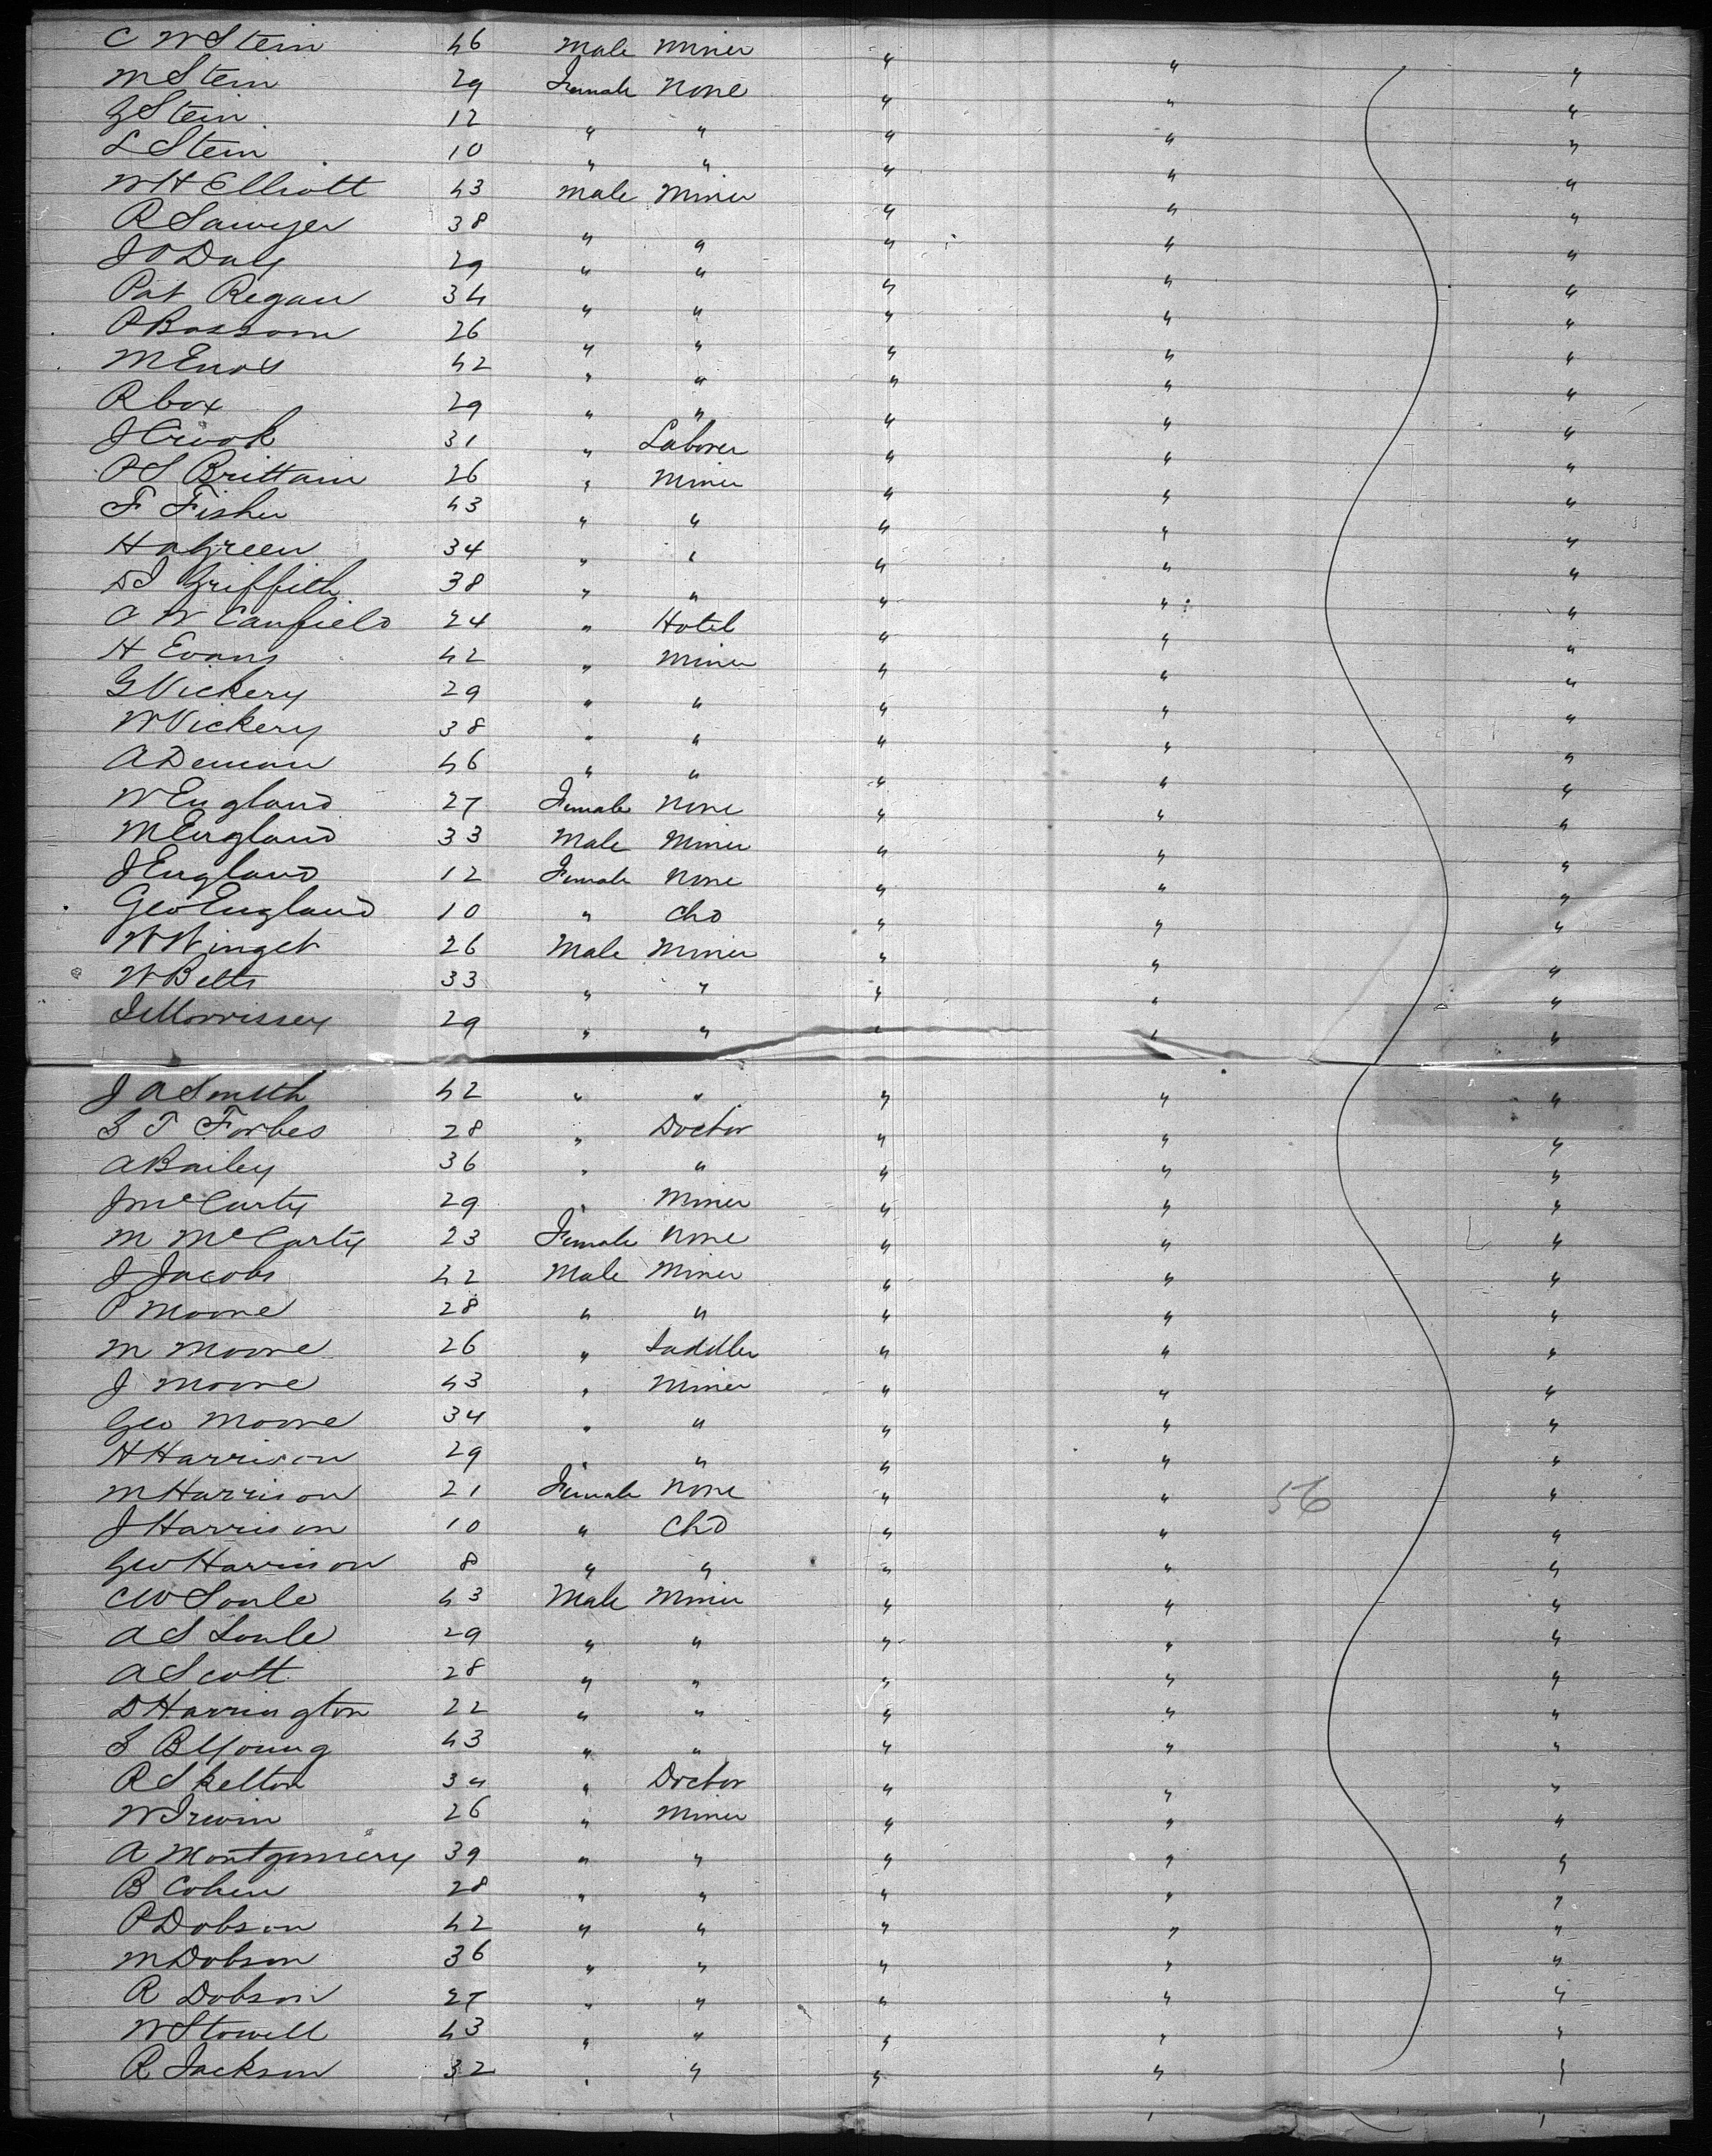 C W Stein 46 Male Miner " " "
M Stein 29 Female None " " "
G Stein 12 " " " " "
L Stein 10 " " " " "
W H Elliott 43 Male Miner " " "
R Sawyer 38 " " " " "
J O Daly 29 " " " " "
Pat Regan 34 " " " " "
P Bassom 26 " " " " "
M Enos 42 " " " " "
R Cox 29 " " " " "
J Crook 31 " Laborer " " "
P S Brittain 26 " Miner " " "
F Fisher 43 " " " " "
H A Green 34 " " " " "
D J Griffith 38 " " " " "
C W Canfield 24 " Hotel " " "
H Evans 42 " Miner " " "
G Vickery 29 " " " " "
W Vickery 38 " " " " "
A Deman 46 " " " " "
W England 27 Female None " " "
M England 33 Male Miner " " "
J England 12 Female None " " "
Geo England 10 " Chd " " "
W Winget 26 Male Miner " " "
W Betts 33 " " " " "
J Morrissey 29 " " " " "
J A Smith 42 " " " " "
S T Forbes 28 " Doctor " " "
A Bailey 36 " " " " "
J McCarty 29 " Miner " " "
M McCarty 23 Female None " " "
J Jacobs 42 Male Miner " " "
P Moore 28 " " " " "
M Moore 26 " Saddler " " "
J Moore 43 " Miner " " "
Geo Moore 34 " " " " "
H Harrison 29 " " " " "
M Harrison 21 Female None " " 56 "
J Harrison 10 " Chd " " "
Geo Harrison 8 " " " " "
C W Soule 43 Male Miner " " "
A S Soule 29 " " " " "
A Scott 28 " " " " "
D Harrington 22 " " " " "
S B Young 43 " " " " "
R Skelton 34 " Doctor " " "
W Irwin 26 " Miner " " "
A Montgomery 39 " " " " "
B Cohen 28 " " " " "
P Dobson 42 " " " " "
M Dobson 36 " " " " "
R Dobson 27 " " " " "
W Stowell 43 " " " " "
R Jackson 32 " " " " "